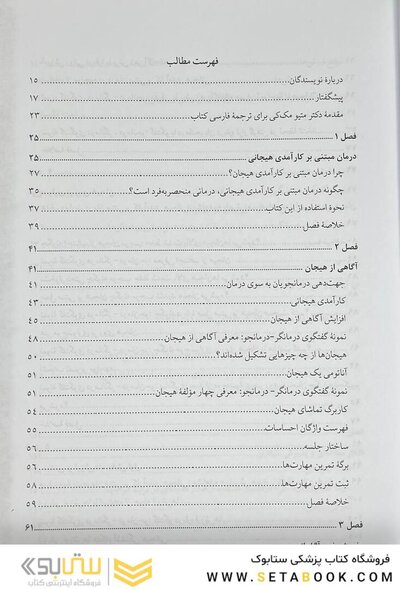 فهرست مطالب
دربارهٔ نویسندگان ۱۵
پیشگفتار ۱۷
مقدمهٔ دکتر متیو مک‌کی برای ترجمهٔ فارسی کتاب ۲۳
فصل ۱ ۲۵
درمان مبتنی بر کارآمدی هیجانی ۲۵
چرا درمان مبتنی بر کارآمدی هیجان؟ ۲۷
چگونه درمان مبتنی بر کارآمدی هیجانی، درمانی منحصربه‌فرد است؟ ۳۵
نحوهٔ استفاده از این کتاب ۳۷
خلاصهٔ فصل ۳۹
فصل ۲ ۴۱
آگاهی از هیجان ۴۱
جهت‌دهی درمانجویان به سوی درمان ۴۱
کارآمدی هیجانی ۴۳
افزایش آگاهی از هیجان ۴۵
نمونهٔ گفتگوی درمانگر-درمانجو: معرفی آگاهی از هیجان ۴۸
هیجان‌ها از چه چیزهایی تشکیل شده‌اند؟ ۵۰
آناتومی یک هیجان ۵۱
نمونهٔ گفتگوی درمانگر- درمانجو: معرفی چهار مؤلفهٔ هیجان ۵۱
کاربرگ تماشای هیجان ۵۴
فهرست واژگان احساسات ۵۵
ساختار جلسه ۵۶
برگهٔ تمرین مهارت‌ها ۵۶
ثبت تمرین مهارت‌ها ۵۸
خلاصهٔ فصل ۵۹
فصل ۳ ۶۱
فروشگاه کتاب پزشکی ستابوک
WWW.SETABOOK.COM
ستابوک
فروشگاه اینترنتی کتاب